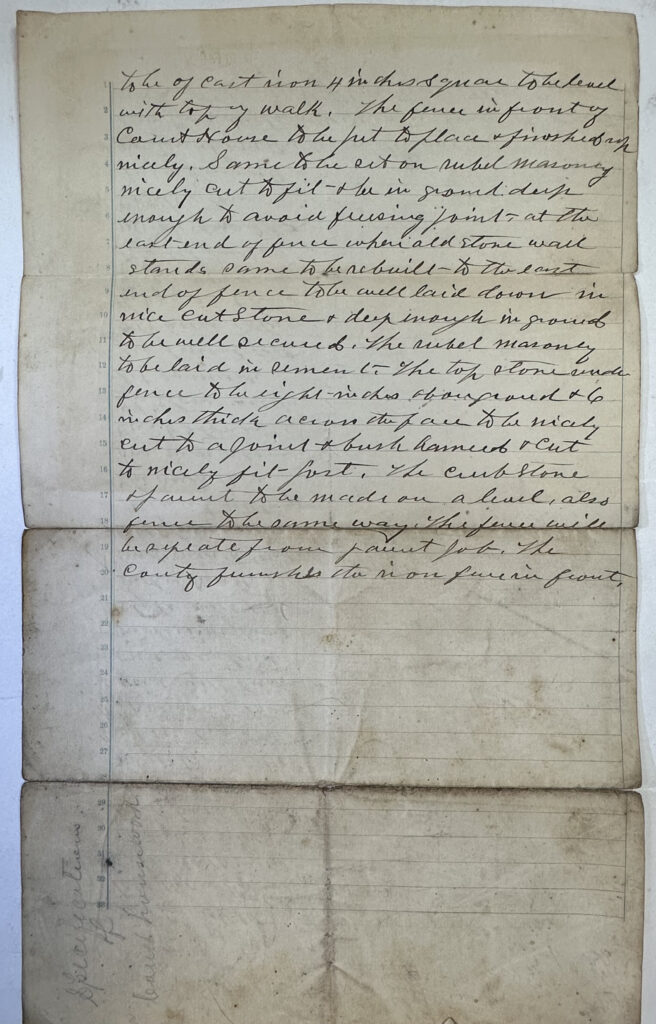 to be of cast iron 4 inches square to be level
with top of walk. The fence in front of
Court House to be put to place & finished up
nicely. Same to be set on rubel masonry
nicely cut to fit & be in ground deep
enough to avoid freesing joint at the
east end of fence when old stone wall
stands same to be rebuilt to the east
end of fence to be well laid down in
nice cut stone & deep enough in ground
to be well secured. The rubel masonry
to be laid in sement. The top stone under
fence to be eight inches above ground & 6
inches thick across the face to be nicely
cut to a joint & bush hamed & cut
to nicely fit. The curb stone
& to be made on a level, also
fence to be same way. The fence will
be seperate from job. The
county furnishes the iron fence in front.
1
2
3
4
5
6
7
8
9
10
11
12
13
14
15
16
17
18
19
20
21
22
23
24
25
26
27
Specifications
of